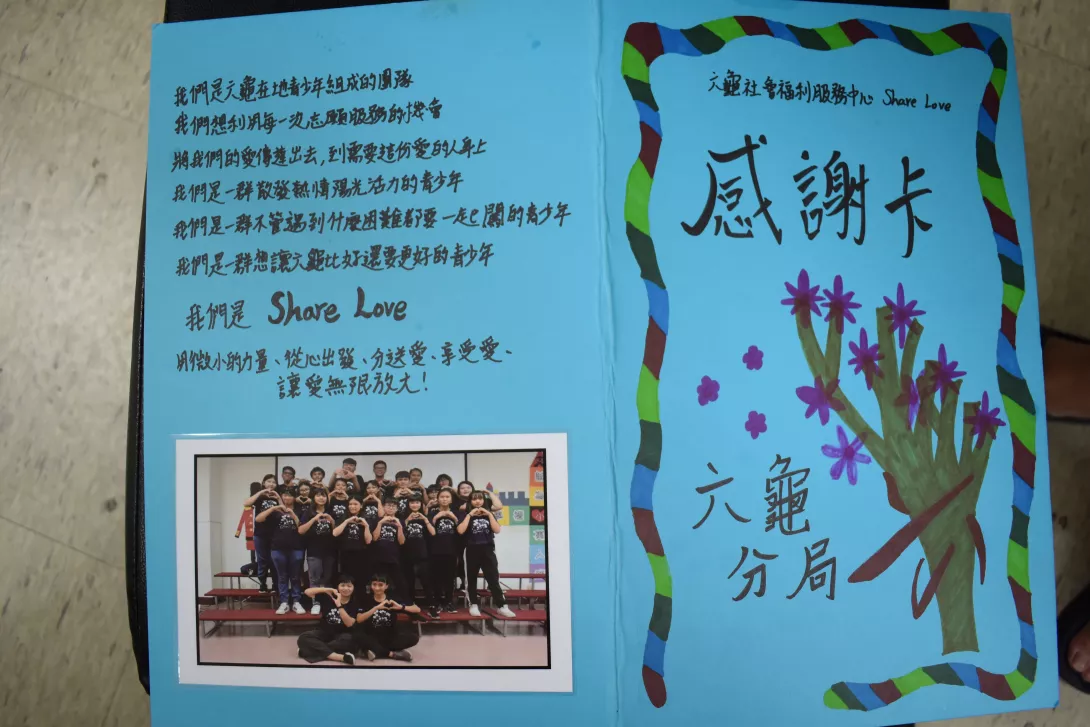 我們是六龜在地青少年組成的團隊
我們想利用每一次志願服務的機會
將我們的愛傳達出去,到需要這份愛的人身上
我們是一群散發熱情陽光活力的青少年
我們是一群不管遇到什麼困難都要一起ㄟ闖的青少年
我們是一群想讓六龜比好還要更好的青少年
我們是 Share Love
用微小的力量、從心出發、分送愛、享受愛、
讓愛無限放大!
六龜社會福利服務中心 Share Love
感謝卡
六龜
分局